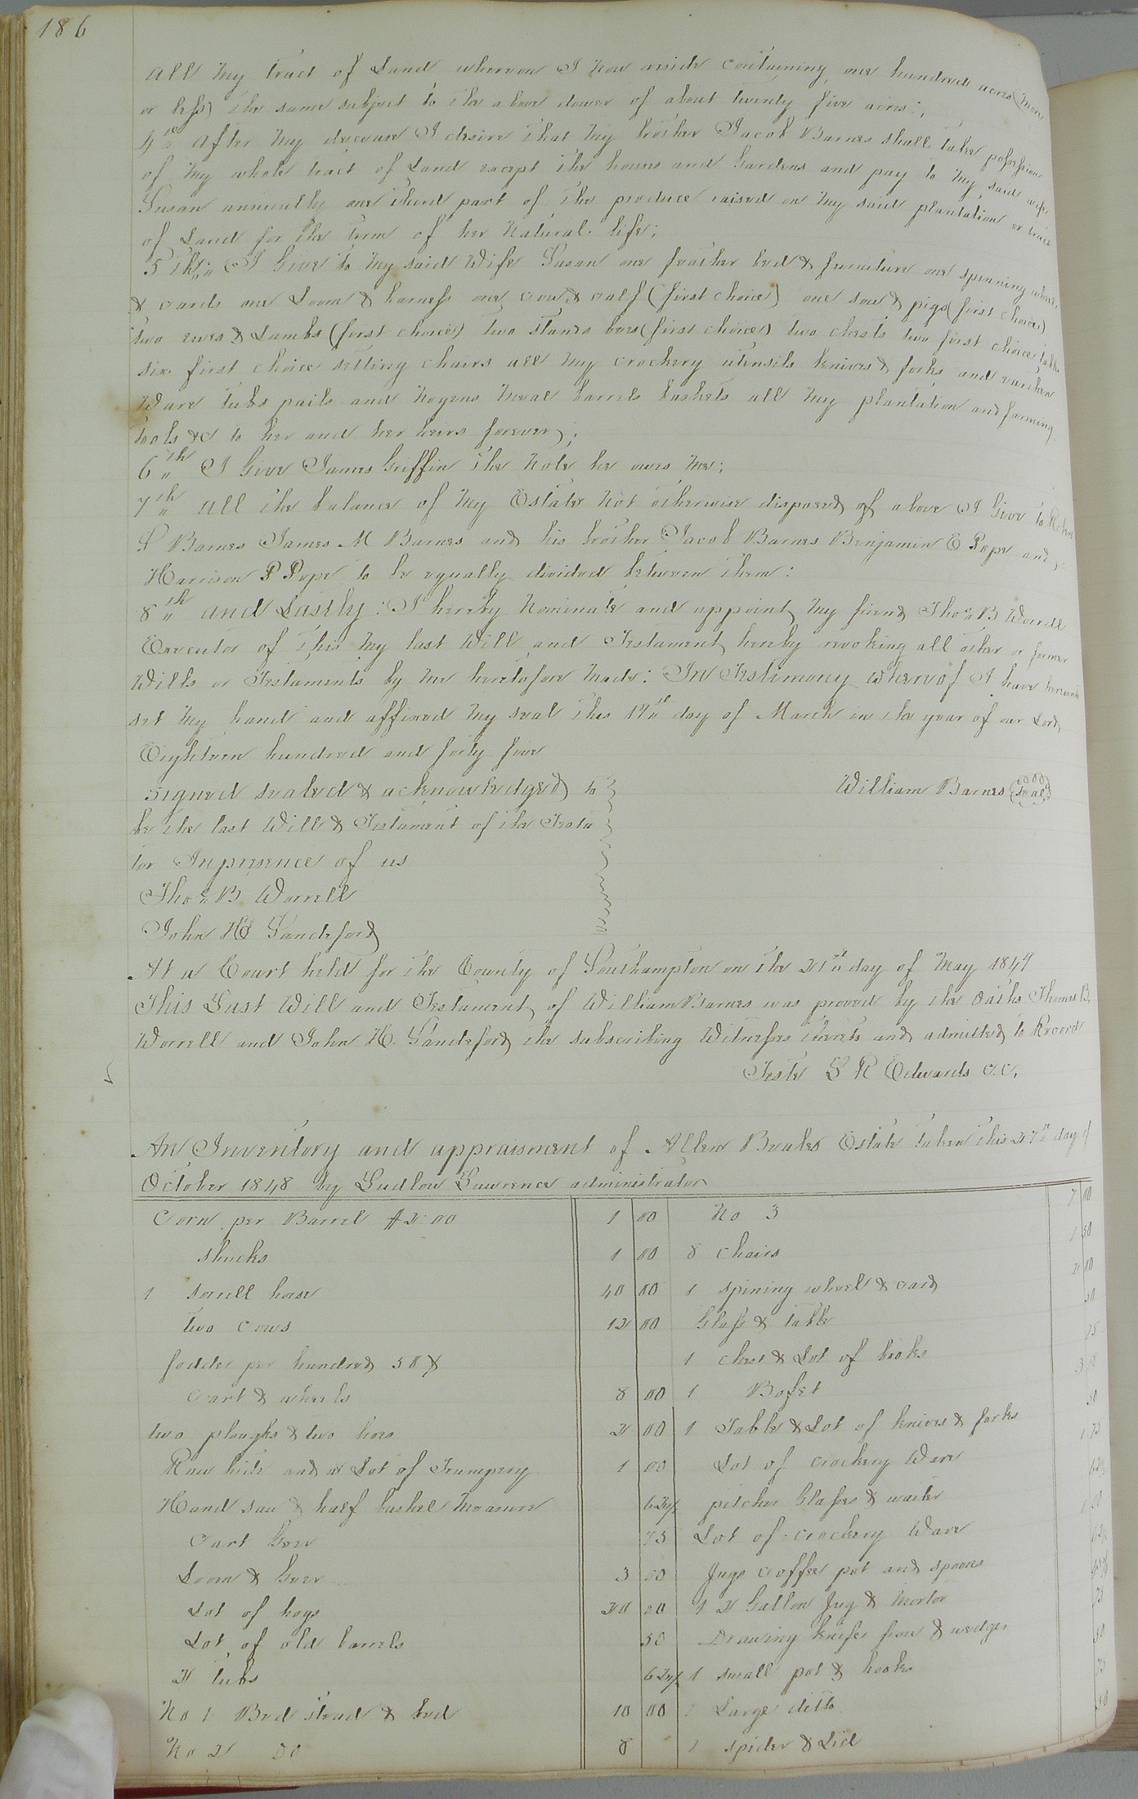 186
All my tract of Land whereon I now reside containing one hundred acres (more
or less) the same subject to the above dower of about twenty five acres;
4th After my decease I desire that my brother Jacob Barnes shall take possession
of my whole tract of Land except the houses and Gardens and pay to my said wife
Susan annually one third part of the produce raised on my said plantation or tract
of Land for the term of her natural life;
5th I Give to my said Wife Susan one feather bed & furniture one spinning wheel
& cards one Loom & harness one cow & calf (first choice) one sow & pigs (first choice)
two ewes & Lambs (first choice) two stands bees (first choice) two chests two first choice tables
six first choice setting chairs all my crockery utensils knives & forks and earthen
Ware tubs pails and meal barrels baskets all my plantation and farming
tools &c to her and her heirs forever;
6th I Give James Griffin the note he owes me;
7th All the balance of my Estate not otherwise disposed of above I Give to
S Barnes James M Barnes and his brother Jacob Barnes Benjamin E Pope and
Harrison P Pope to be equally divided between them:
8th and Lastly: I hereby nominate and appoint my friend Thos B Worrell
Executor of this my last Will and Testament hereby revoking all other or former
Wills or Testaments by me heretofore made: In Testimony whereof I have hereunto
set my hand and affixed my seal this day of March in the year of our Lord
Eighteen hundred and forty four
Signed sealed & acknowledged to
William Barnes (seal)
be the last Will & Testament of the Testa
tor In presence of us
Thos B. Worrell
John H Sandeford
At a Court held for the County of Southampton on the day of May 1847
This Last Will and Testament of William Barnes was proved by the Oaths Thomas B.
Worrell and John H. Sandeford the subscribing Witnesses thereto and admitted to Record
Teste L R Edwards C.C.
An Inventory and appraisment of Allen Beales Estate taken this 27th day of
October 1848 by Ludlow Lawrence administrator
Corn per Barrel $2.00 1 00 No 3 7 00
shucks 1 00 8 chairs 1 50
1 sorell horse 40 00 1 spining wheel & card 2 00
two cows 12 00 Glass & table 50
fodder per hundred 1 chest & Lot of books 75
Cart & wheels 8 00 1 Bofet
two ploughs & two hoes 2 00 1 Table & Lot of knives & forks 50
Raw hide and a Lot of Trumpery 1 00 Lot of crockery Ware
Hand saw & half bushel measure 62½ pitcher Glasses & waiter
Cart Geer 75 Lot of crockery Ware
Loom & Geer 3 00 Jugs coffee pot and spoons
Lot of hogs 20 00 1 2 Gallon Jug & Mortor
Lot of old barrels 50 Drawing knife frow & wedges
2 tubs 62½ 1 small pot & hooks
No 1 Bed stead & bed 10 00 1 Large ditto
No 2 Do 8 1 spider & Lid